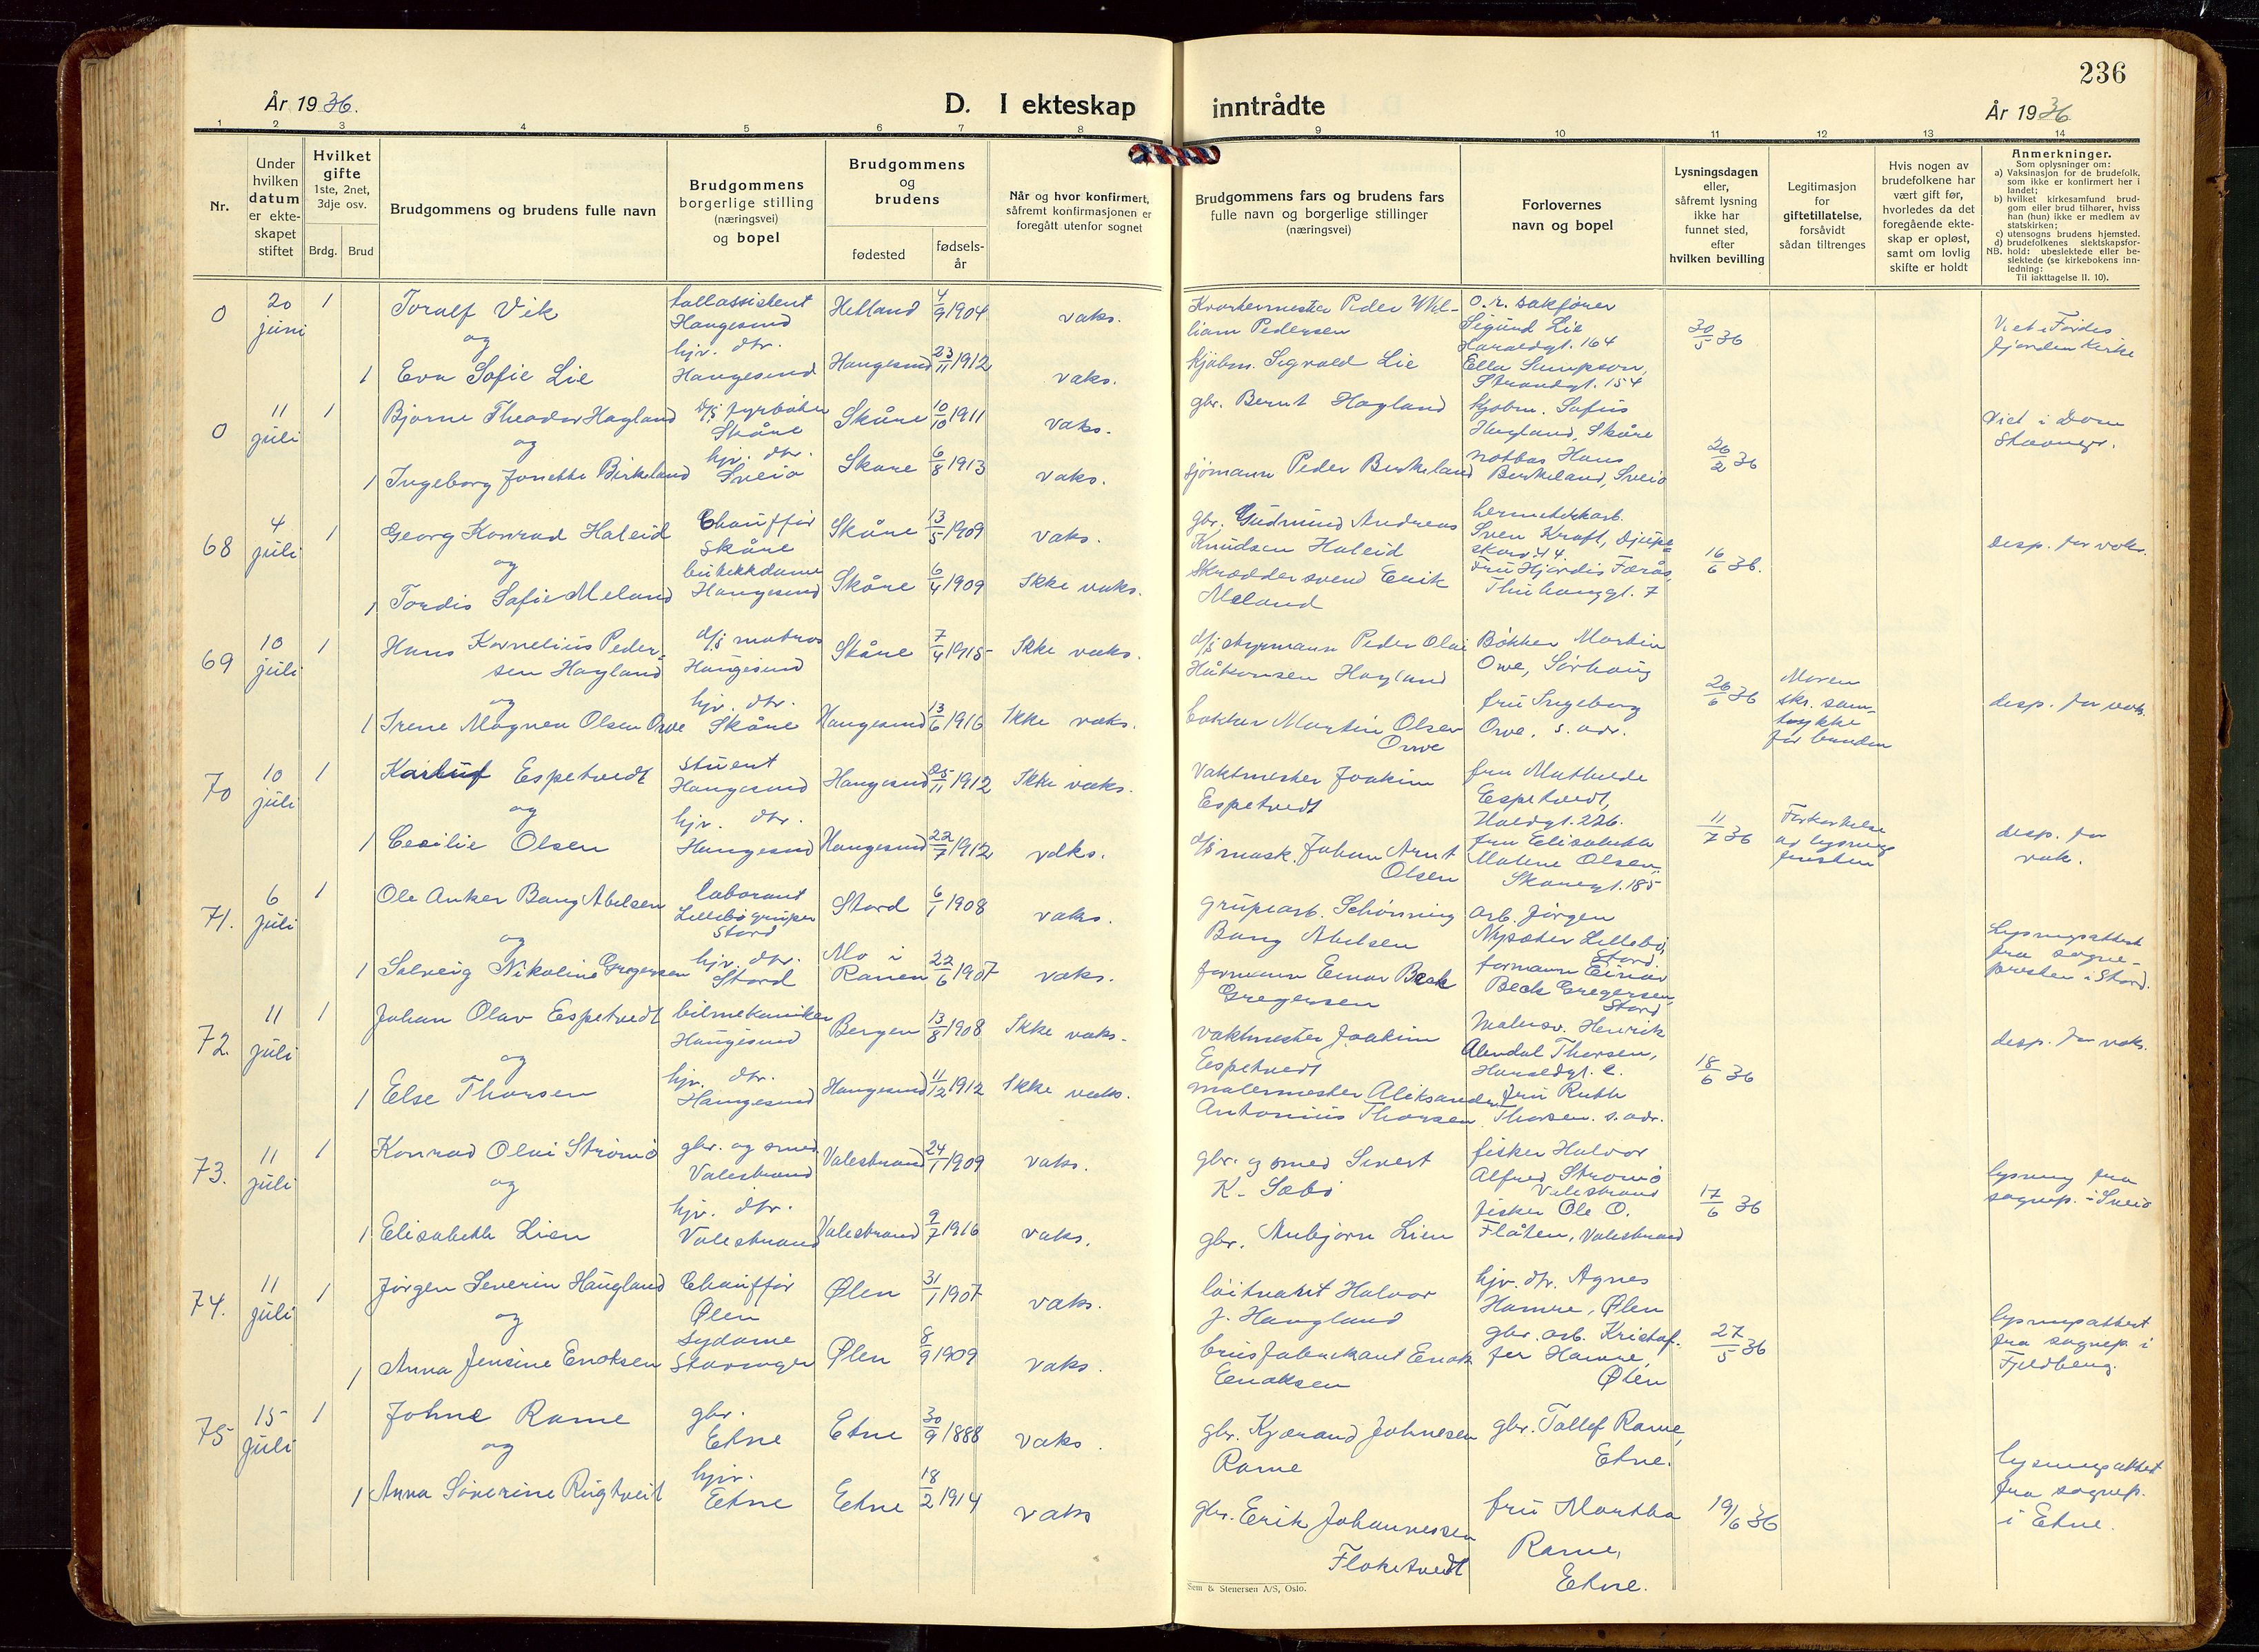 236
År 1936.
D. I ekteskap
inntrådte
År 1936
1 2 3 4 5 6 7 8 9 10 11 12 13 14
Nr.
Under
hvilken
datum
er ekte-
skapet
stiftet
Hvilket
gifte
1ste, 2net,
3dje osv.
Brdg. Brud
Brudgommens og brudens fulle navn
Brudgommens
borgerlige stilling
(næringsvei)
og bopel
Brudgommens
og
brudens
fødested
fødsels-
år
Når og hvor konfirmert,
såfremt konfirmasjonen er
foregått utenfor sognet
Brudgommens fars og brudens fars
fulle navn og borgerlige stillinger
(næringsvei)
Forlovernes
navn og bopel
Lysningsdagen
eller,
såfremt lysning
ikke har
funnet sted,
efter
hvilken bevilling
Legitimasjon
for
giftetillatelse,
forsåvidt
sådan tiltrenges
Hvis nogen av
brudefolkene har
vært gift før,
hvorledes da det
foregående ekte-
skap er opløst,
samt om lovlig
skifte er holdt
Anmerkninger.
Som oplysninger om:
a) Vaksinasjon for de brudefolk,
som ikke er konfirmert her i
landet;
b) hvilket kirkesamfund brud-
gom eller brud tilhører, hviss
han (hun) ikke er medlem av
statskirken;
c) utensogns brudens hjemsted.
d) brudefolkenes slektskapsfor-
NB. hold: ubeslektede eller be-
slektede (se kirkebokens inn-
ledning:
Til iakttagelse II. 10).
0
20
juni
1
Toralf Vik
og
1 Eva Sofie Lie
tollassistent
Haugesund
hjv. dtr.
Haugesund
Hetland 4/9 1904 vaks.
Haugesund 23/11 1912 vaks.
Kvartermester Peder Wil-
liam Pedersen
kjøbm. Sigvald Lie
o.r. sakfører
Sigurd Lie
Haraldgt. 164
Ella Simpson,
Strandgt. 154
30/5 36
Viet i Førdes
fjorden Kirke
0
11
juli
1
Bjarne Theodor Hagland
og
1 Ingeborg Jonette Birkeland
d/s fyrbøter
Skåre
hjv. dtr.
Sveio
Skåre 10/10 1911 vaks.
Skåre 6/8 1913 vaks.
gbr. Bernt Hagland
sjømann Peder Birkeland
kjøbm. Sofus
Hagland, Skåre
notbas Hans
Birkeland, Sveio
26/2 36
Viet i Dom
Stavanger.
68
4
juli
1
Georg Konrad Haleid
og
1 Tordis Sofie Meland
Chauffør
Skåre
butikkdame
Haugesund
Skåre 13/5 1909 vaks.
Skåre 6/4 1909 Ikke vaks.
gbr. Gudmund Andreas
Knudsen Haleid
Skreddersvend Erik
Meland
hermetikkarb.
Sven Kraft, Djupa-
skarv. 44.
Fru Hjørdis Færås,
Thuhauggt. 7
16/6 36.
desp. for vaks.
69
10
juli
1
Hans Kornelius Peder-
sen Hagland
og
1 Irene Magnea Olsen Orve
d/s matros
Haugesund
hjv. dtr.
Skåre
Skåre 7/4 1915 Ikke vaks.
Haugesund 13/6 1916 Ikke vaks.
d/s styrmann Peder Olai
Håkonsen Hagland
bøkker Martin Olsen
Orve
Bøkker Martin
Orve, Sørhaug
fru Ingeborg
Orve, s. adr.
26/6 36
Moren
skr. sam-
tykke
for bruden
desp. for vaks.
70
10
juli
1
Karluf Espetvedt
og
1 Cecilie Olsen
stuert
Haugesund
hjv. dtr.
Haugesund
Haugesund 25/11 1912 Ikke vaks.
Haugesund 22/7 1912 vaks.
Vaktmester Joakim
Espetvedt
d/s mask. Johan Arnt
Olsen
fru Mathilde
Espetvedt,
Haldgt. 226.
fru Elisabeth
Malene Olsen,
Skåregt. 185
11/7 36
Forkortelse
av lysnings
fristen
desp. for
vak.
71.
6
juli
1
Ole Anker Bang Abelsen
og
1 Solveig Nikoline Gregersen
laborant
Lillebø gruper
Stord
hjv. dtr.
Stord
Stord 6/1 1908 vaks.
Mo i
Ranen 22/6 1907 vaks.
grupearb. Schønning
Bang Abelsen
formann Einar Beck
Gregersen
arb. Jørgen
Nysæter Lillebø,
Stord.
formann Einar
Beck Gregersen,
Stord
Lysningsattest
fra sogne-
presten i Stord.
72.
11
juli
1
Johan Olav Espetvedt
og
1 Else Thorsen
bilmekaniker
Haugesund
hjv. dtr.
Haugesund
Bergen 13/8 1908 Ikke vaks.
Haugesund 11/12 1912 Ikke vaks.
vaktmester Joakim
Espetvedt
malermester Aleksander
Antonius Thorsen
Malersv. Henrik
Alendal Thorsen,
Haraldgt. 2.
fru Ruth
Thorsen. s. adr.
18/6 36
desp. for vaks.
73.
11
juli
1
Konrad Olai Strømø
og
1 Elisabeth Lien
gbr. og smed
Valestrand
hjv. dtr.
Valestrand
Valestrand 24/1 1909 vaks.
Valestrand 9/7 1916 vaks.
gbr. og smed Sivert
K. Sæbø
gbr. Anbjørn Lien
fisker Halvor
Alfred Strømø
Valestrand
fisker Ole O.
Flåten, Valestrand
17/6 36
lysning fra
sognep. i Sveio
74.
11
juli
1
Jørgen Severin Haugland
og
1 Anna Jensine Enoksen
Chauffør
Ølen
sydame
Stavanger
Ølen 31/1 1907 vaks.
Ølen 8/9 1909 vaks.
løitnant Halvor
J. Haugland
brusfabrikant Enok
Enoksen
hjv. dtr. Agnes
Hamre, Ølen
gbr. arb. Kristof-
fer Hamre,
Ølen
27/5 36
lysningsattest
fra sognep. i
Fjeldberg.
75
15
juli
1
Johne Rame
og
1 Anna Søverine Rugtveit
gbr.
Etne
hjv.
Etne
Etne 30/9 1888 vaks.
Etne 18/2 1914 vaks
gbr. Kjærand Johnesen
Rame
gbr. Erik Johannessen
Floketvedt
gbr. Tollef Rame,
Etne.
fru Martha
Rame,
Etne.
19/6 36
lysningsattest
fra sognep.
i Etne.
Sem & Stenersen A/S, Oslo.